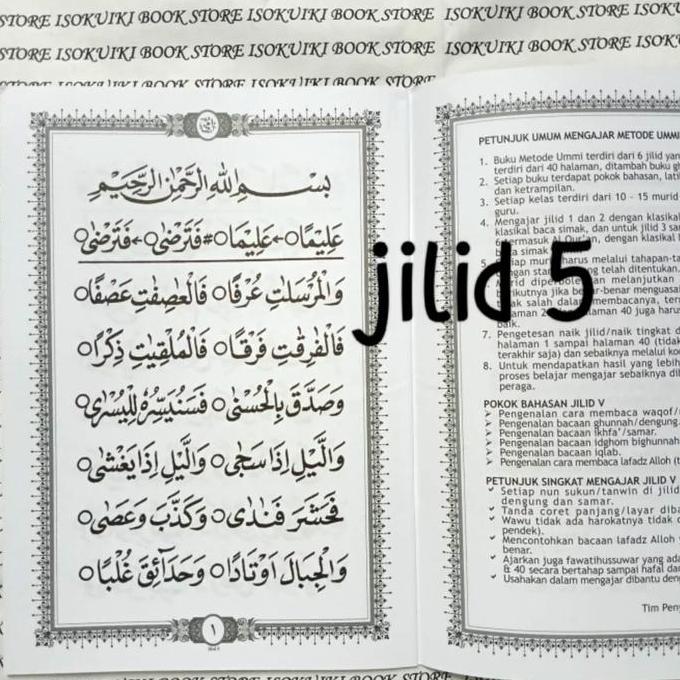 STORE ISOKUIKI BOOK STORE ISOKUIKI BOOK STORE ISOKUIKI BOOK STORE
STORE ISOKUIKI BOOK STORE ISOKUIKI BOOK STORE ISOKUIKI BOOK STORE
STORE ISOKUIKI BOOK STORE ISOKUIKI BOOK STORE
بِسْمِ اللهِ الرَّحْمٰنِ الرَّحِيْمِ
عَلِيْمًا ← عَلِيْمَا # فَتَرْضٰىۙ ← فَتَرْضٰى
وَالْمُرْسَلٰتِ عُرْفًا فَالْعٰصِفٰتِ عَصْفًا
فَالْفٰرِقٰتِ فَرْقًا فَالْمُلْقِيٰتِ ذِكْرًا
وَصَدَّقَ بِالْحُسْنٰى فَسَنُيَسِّرُهٗ لِلْيُسْرٰى
وَالَّيْلِ اِذَا سَجٰى وَالَّيْلِ اِذَا يَغْشٰى
فَحَشَرَ فَنَادٰى وَكَذَّبَ وَعَصٰى
وَالْجِبَالَ اَوْتَادًا وَحَدَآئِقَ غُلْبًا
١
jilid 5
PETUNJUK UMUM MENGAJAR METODE UMMI
1. Buku Metode Ummi terdiri dari 6 jilid
terdiri dari 40 halaman, ditambah buku
2. Setiap buku terdapat pokok bahasan,
dan ketrampilan.
3. Setiap kelas terdiri dari 10 - 15 murid
guru.
4. Mengajar jilid 1 dan 2 dengan klasikal
klasikal baca simak, dan untuk jilid 3
termasuk Al Qur'an, dengan klasikal
simak
5. harus melalui tahapan
telah ditentukan.
melanjutkan
jika benar-benar menguasai
salah dalam membacanya,
40 juga harus
baik.
7. Pengetesan naik jilid/naik tingkat
halaman 1 sampai halaman 40 (tidak
terakhir saja) dan sebaiknya melalui
8. Untuk mendapatkan hasil yang lebih
proses belajar mengajar sebaiknya
peraga.
POKOK BAHASAN JILID V
➢ Pengenalan cara membaca waqof/
➢ Pengenalan bacaan ghunnah/dengung.
➢ Pengenalan bacaan ikhfa'/samar.
➢ Pengenalan bacaan idghom bighunnah
➢ Pengenalan bacaan iqlab.
➢ Pengenalan cara membaca lafadz Alloh
PETUNJUK SINGKAT MENGAJAR JILID V
Setiap nun sukun/tanwin di jilid
dengung dan samar.
Tanda coret panjang/layar
Wawu tidak ada harokatnya tidak
pendek).
Mencontohkan bacaan lafadz Alloh
benar.
Ajarkan juga fawatihussuwar yang
& 40 secara bertahap sampai hafal
Usahakan dalam mengajar dibantu
Tim
ISOKUIKI BOOK STORE ISOKUIKI BOOK STORE